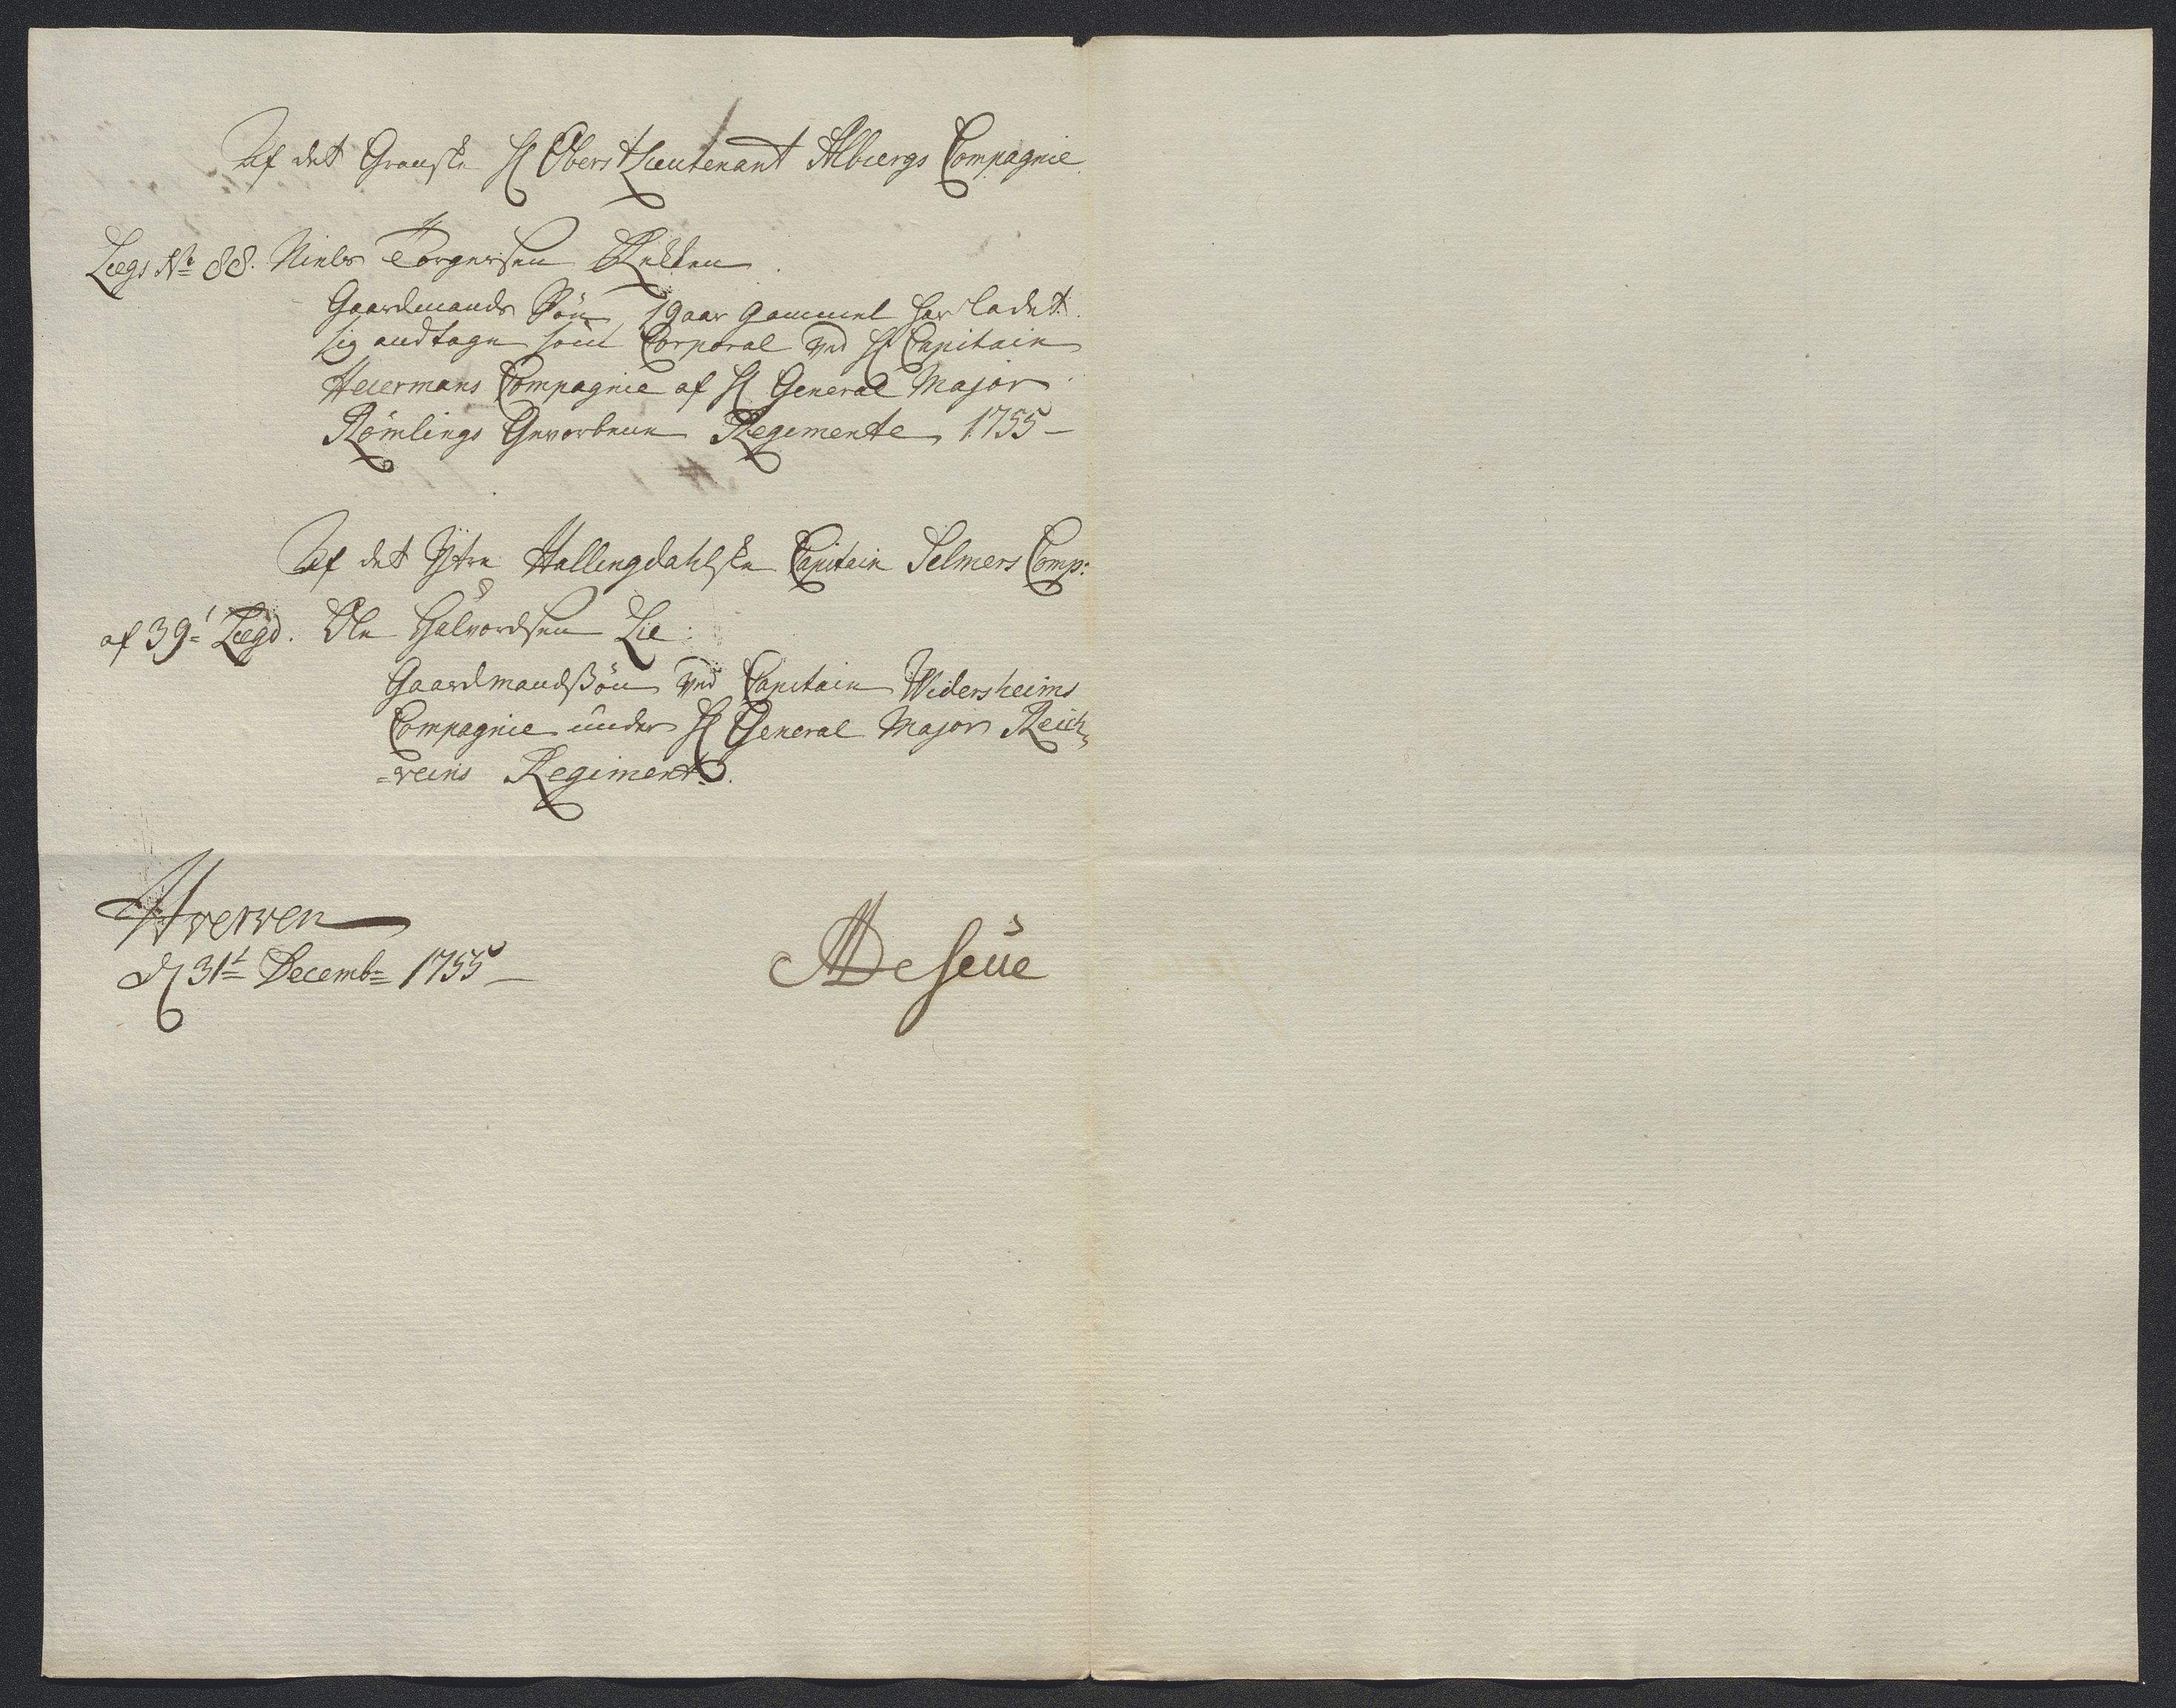 Af det Granske H Oberst Lieutenant Albiergs Compagnie
Lægs No 88. Niels Torgersen
Gaardmands Søn, 19 aar gammel har ladet
sig andtage som Corporal ved H Capitain
Heiermans Compagnie af H General Major
Römlings Gevorbene Regimente 1755 –
Af det Ytre Hallingdahlske Capitain Selmers Comp:
af 39t Lægd. Ole Halvordsen Lie
Gaardmandssøn ved Capitain Widersheims
Compagnie under H General Major Reich
=weins Regiment.
Hverven
d 31t Decembr 1755 –
De Seue